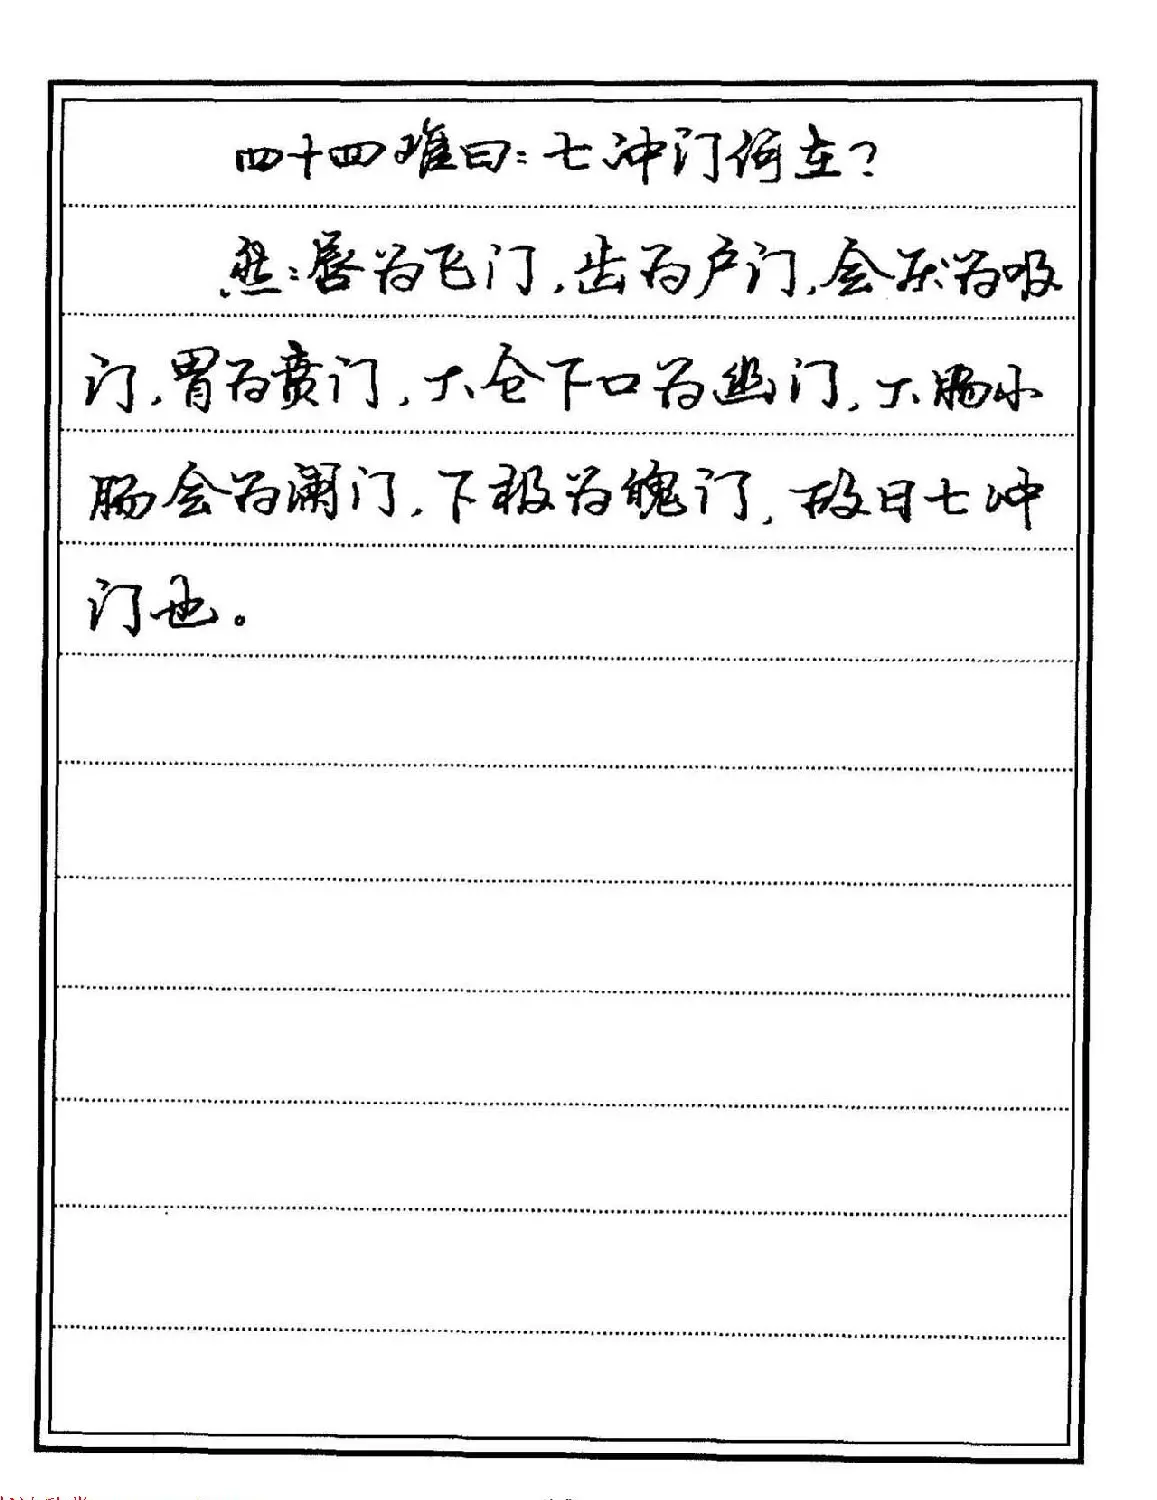 四十四难曰：七冲门何在？
然：唇为飞门，齿为户门，会厌为吸
门，胃为贲门，大仓下口为幽门，大肠小
肠会为阑门，下极为魄门，故曰七冲
门也。